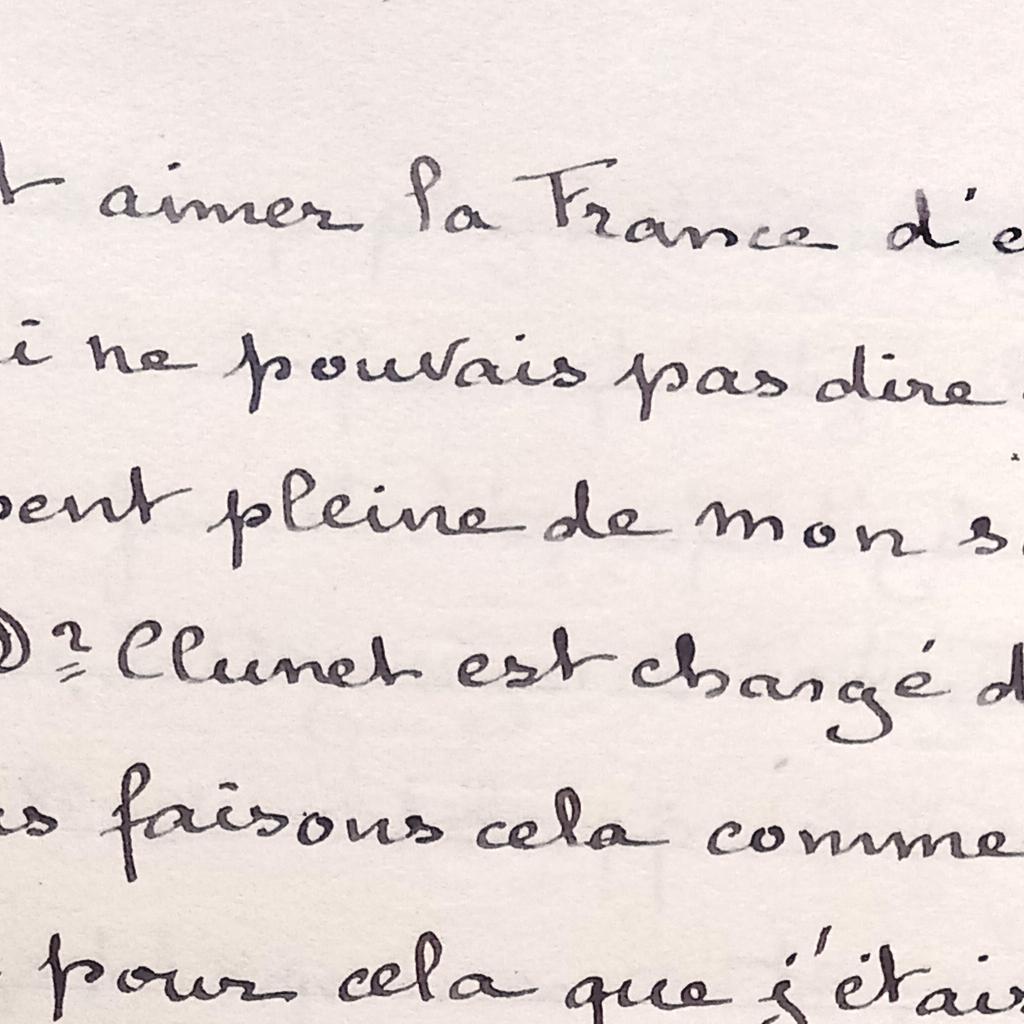 t aimer la France d'e
i ne pouvais pas dire
pleine de mon s
Dr Clunet est chargé d
us faisons cela comme
pour cela que j'étais